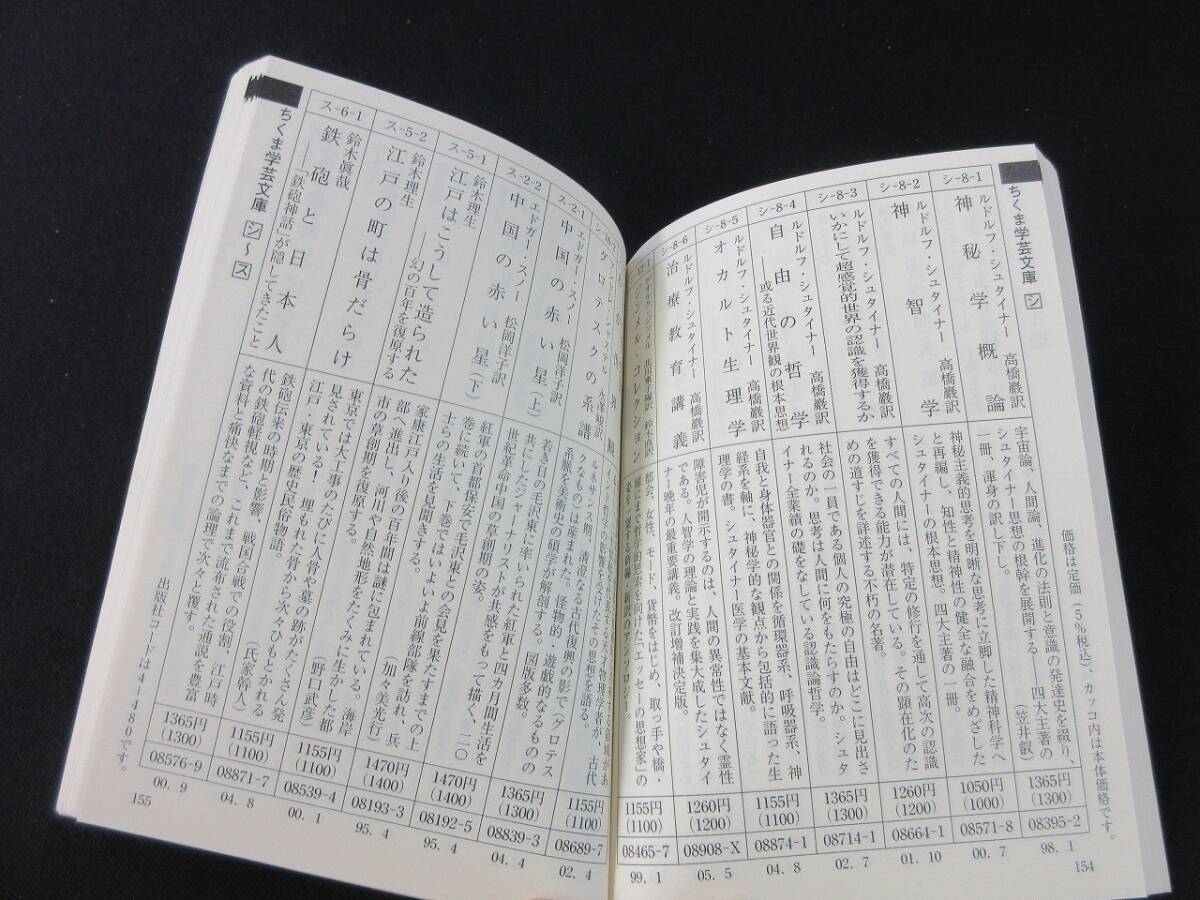 ちくま学芸文庫 シ
価格は定価(5%税込)、カッコ内は本体価格です。
シ-8-1
ルドルフ・シュタイナー 高橋巖訳
神秘学概論
宇宙論、人間論、進化の法則と意識の発達史を綴り、
シュタイナー思想の根幹を展開する――四大主著の
一冊、渾身の訳し下し。 (笠井叡)
1365円
(1300)
08395-2
98. 1
シ-8-2
ルドルフ・シュタイナー 高橋巖訳
神智学
神秘主義的思考を明晰な思考に立脚した精神科学へ
と再編し、知性と精神性の健全な融合をめざした
シュタイナーの根本思想。四大主著の一冊。
1050円
(1000)
08571-8
00. 7
シ-8-3
ルドルフ・シュタイナー 高橋巖訳
いかにして超感覚的世界の認識を獲得するか
すべての人間には、特定の修行を通して高次の認識
を獲得できる能力が潜在している。その顕在化のた
めの道すじを詳述する不朽の名著。
1260円
(1200)
08664-1
01. 10
シ-8-4
ルドルフ・シュタイナー 高橋巖訳
自由の哲学
――或る近代世界観の根本思想
社会の一員である個人の究極の自由はどこに見出さ
れるのか。思考は人間に何をもたらすのか。シュタ
イナー全業績の礎をなしている認識論哲学。
1365円
(1300)
08714-1
02. 7
シ-8-5
ルドルフ・シュタイナー 高橋巖訳
オカルト生理学
自我と身体器官との関係を循環器系、呼吸器系、神
経系を軸に、神秘学的な観点から包括的に語った生
理学の書。シュタイナー医学の基本文献。
1155円
(1100)
08874-1
04. 8
シ-8-6
ルドルフ・シュタイナー 高橋巖訳
治療教育講義
障害児が開示するのは、人間の異常性ではなく霊性
である。人智学の理論と実践を集大成したシュタイ
ナー晩年の最重要講義。改訂増補決定版。
1260円
(1200)
08908-X
05. 5
ジンメル・コレクション
都会、女性、モード、貨幣をはじめ、取っ手や橋・
扉にまで哲学的思索を向けた「エッセーの思想家」の
1155円
(1100)
08465-7
99. 1
154
グロテスクの系譜
ルネサンス期、清澄なる古代復興の影で〈グロテス
クなもの〉は産まれた。怪物的・遊戯的なるものの
系脈を美術史の碩学が解剖する。図版多数。
1155円
(1100)
08689-7
02. 4
ス-2-1
エドガー・スノー 松岡洋子訳
中国の赤い星(上)
若き日の毛沢東に率いられた紅軍と四カ月間生活を
共にしたジャーナリストが共感をもって描く、二〇
世紀革命中国の草創期の姿。
1365円
(1300)
08839-3
04. 4
ス-2-2
エドガー・スノー 松岡洋子訳
中国の赤い星(下)
紅軍の首都保安で毛沢東との会見を果たすまでの上
巻に続いて、下巻ではいよいよ前線部隊を訪れ、兵
士らの生活を見聞きする。 (加々美光行)
1470円
(1400)
08192-5
95. 4
ス-5-1
鈴木理生
江戸はこうして造られた
――幻の百年を復原する
家康江戸入り後の百年間は謎に包まれている。海岸
部へ進出し、河川や自然地形をたくみに生かした都
市の草創期を復原する。 (野口武彦)
1470円
(1400)
08193-3
95. 4
ス-5-2
鈴木理生
江戸の町は骨だらけ
東京では大工事のたびに人骨や墓の跡がたくさん発
見されている！ 埋もれた骨から次々ひもとかれる
江戸・東京の歴史民俗物語。 (氏家幹人)
1155円
(1100)
08539-4
00. 1
ス-6-1
鈴木眞哉
鉄砲と日本人
――「鉄砲神話」が隠してきたこと
鉄砲伝来の時期と影響、戦国合戦での役割、江戸時
代の鉄砲軽視など、これまで流布された通説を豊富
な資料と痛快なまでの論理で次々と覆す。
1155円
(1100)
08871-7
04. 8
1365円
(1300)
08576-9
00. 9
ちくま学芸文庫 シ～ス
出版社コードは4-480です。
155